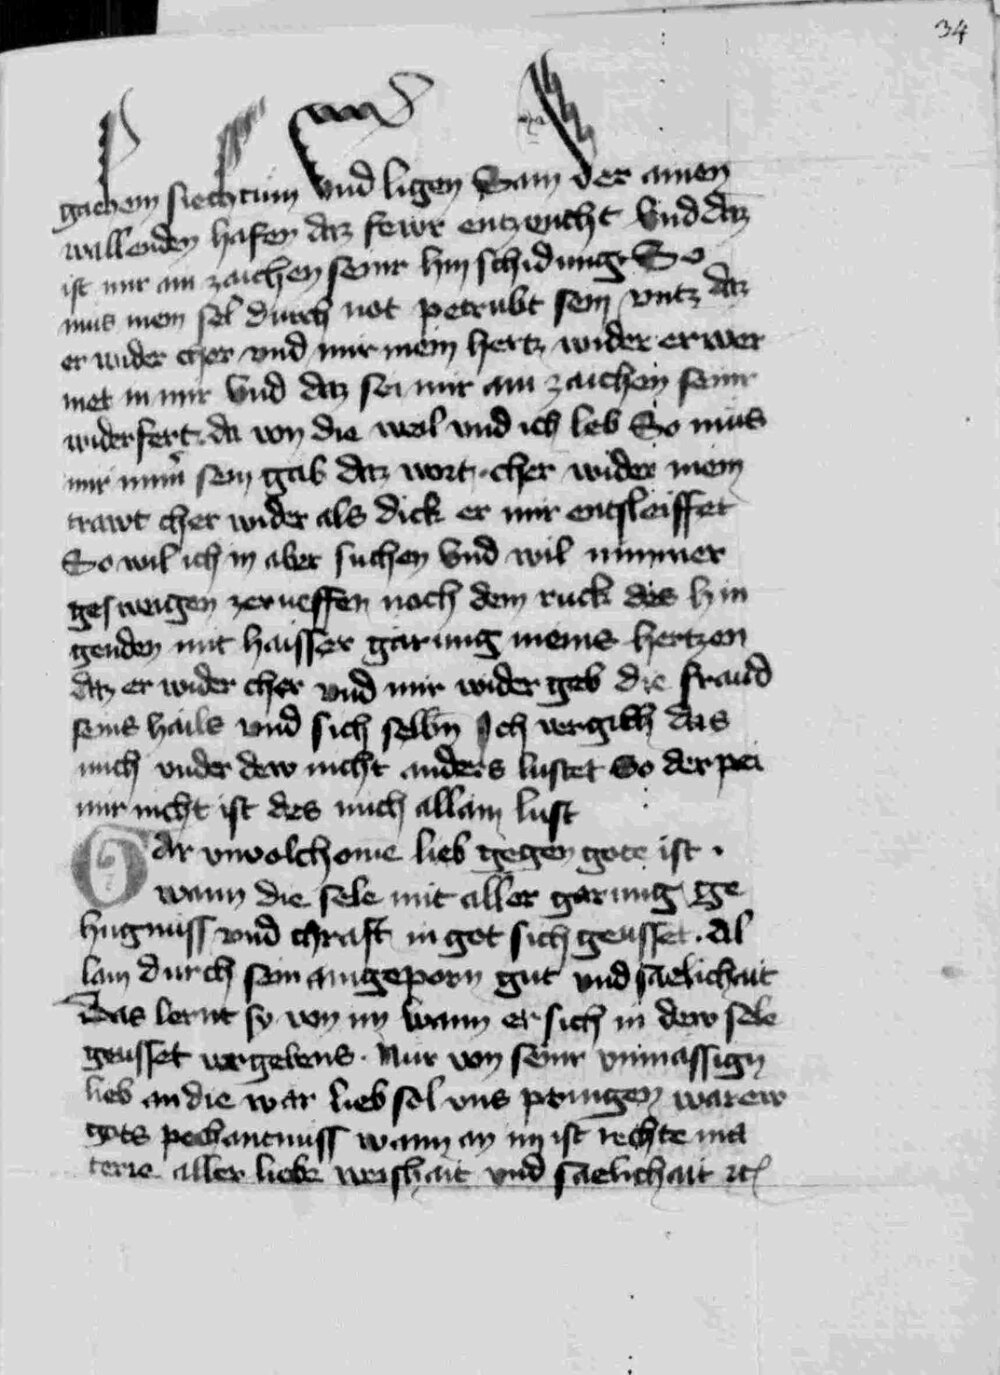 34
gachem siechtum vnd ligen Sam der ainen
wallenden hafen daz fewr entzeucht Vnd daz
ist mir ain zaichen seinr hin schidung So
mus mein sel durch not petrubt sein vntz daz
er wider cher vnd mir mein hertz wider erwer
met in mir Vnd daz sei mir ain zaichen seinr
widerfert da von die weil vnd ich leb So mus
mir nimer sein gab daz wort cher wider mein
trawt cher wider als dick er mir entsleiffet
So wil ich in aber suchen Vnd wil nimmer
gesweigen zerueffen noch dem ruck des hin
genden mit haisser garung meins hertzen
daz er wider cher vnd mir wider geb die fraud
seins hails vnd sich selbn Ich vergich das
mich vnder dew nicht anders lustet So der pei
mir nicht ist des mich allain lust
Gar vnuolchome lieb gegen gote ist ·
wann die sele mit aller garung ge
hugnuss vnd chraft in got sich geusset · Al
lain durch sein aingeporn gut vnd saelichait
Das lernt sy von im wann er sich in dew sele
geusset vergebens · Nur von seinr vnmassign
lieb an die war lieb sol vns pringen warew
gots pechantnuss wann an im ist rechte ma
terie aller liebe weishait vnd saelichait etc